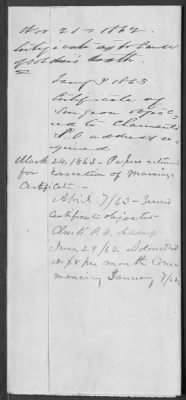 Nov 21st 1862
Certificate as to cause
of soldier's death.
Jany 8. 1863
Certificate of
Surgeon object-
ed to Claimants
P.O. address re-
quired
March 24. 1863 - Papers returned
for execution of marriage
Certificate -
April 7/63 - Second
Certificate objected
Clmts P.O. Address
June 29/63. Admitted
at $8 per month Com-
mencing January 7/62